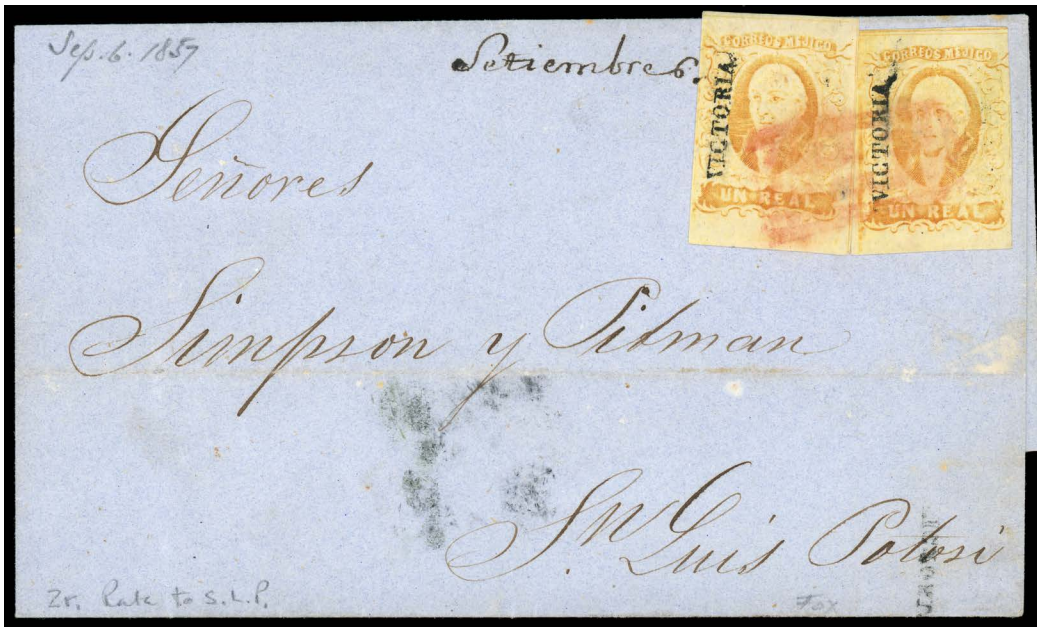 Sep. 6. 1857
Setiembre 6.
CORREOS MEJICO
VICTORIA
UN REAL
CORREOS MEJICO
VICTORIA
UN REAL
Señores
Simpson y Pitman
Sn Luis Potosi
2r. Rate to S.L.P.
Fox